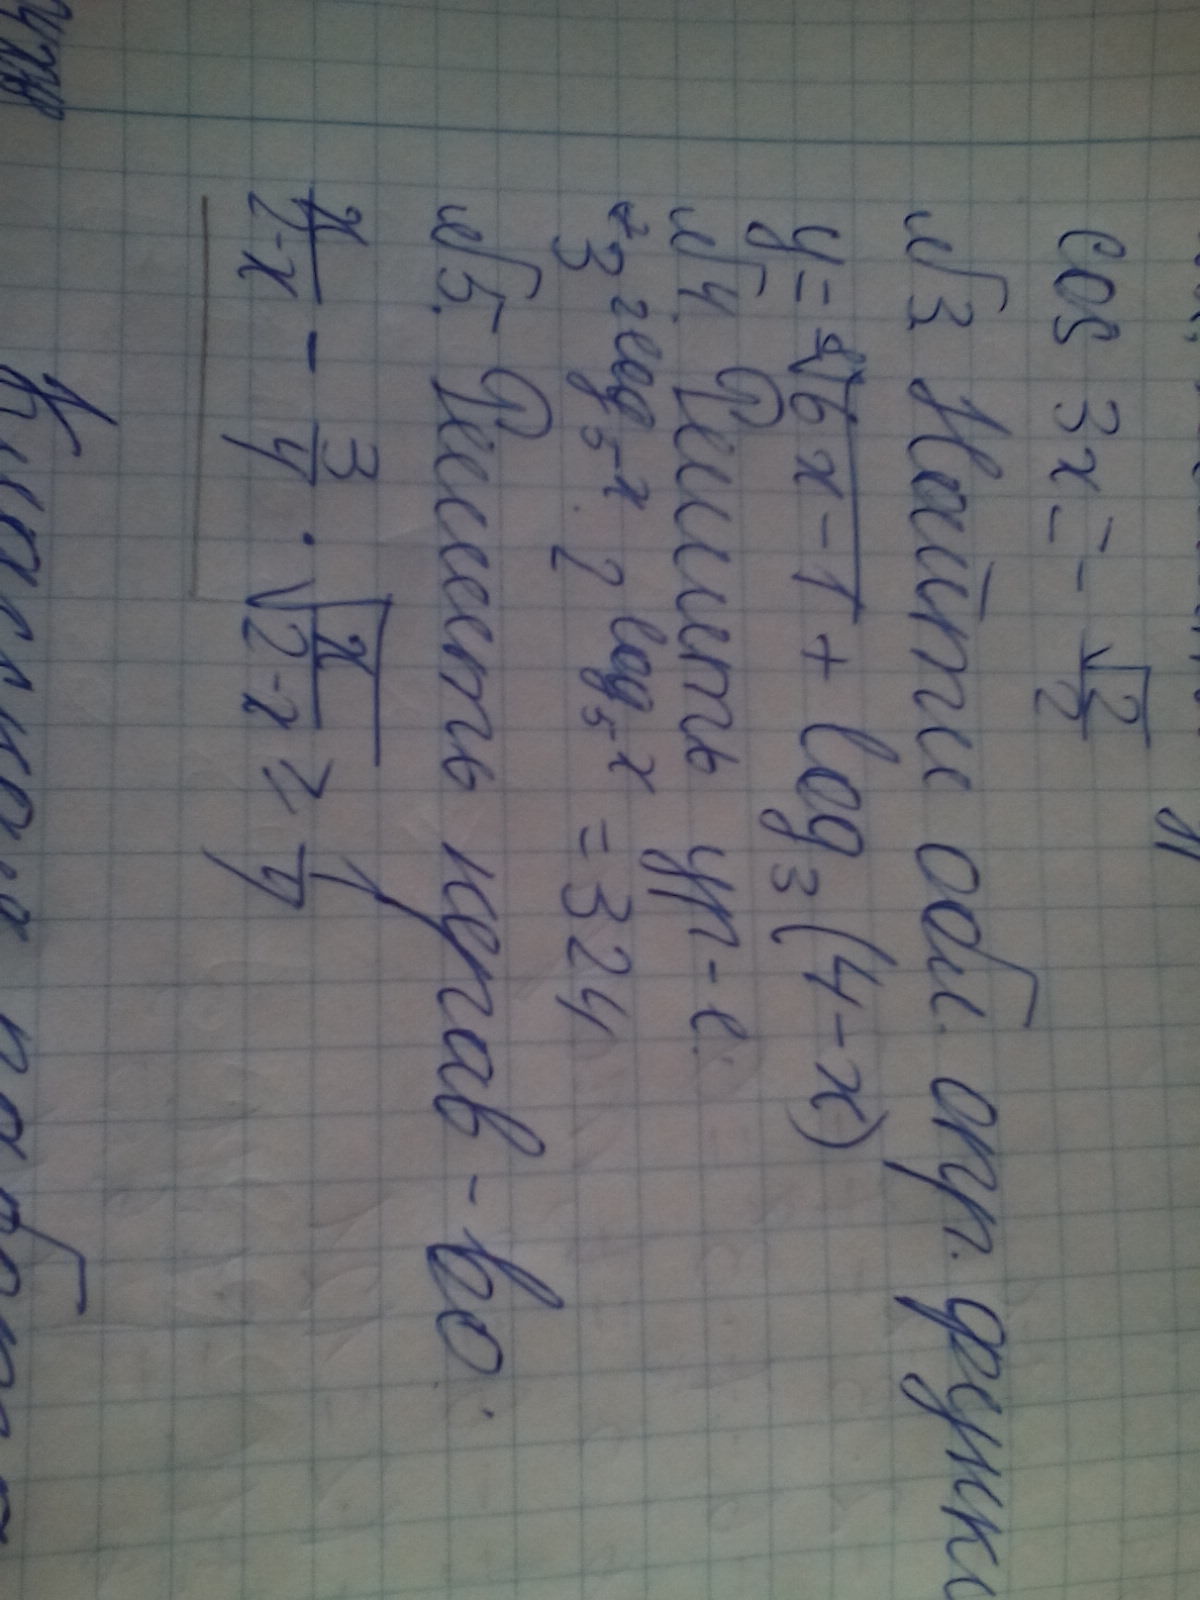 cos 3x = - √2/2
№3 Найти обл. опр. функц
y = ⁸√6x-1 + log₃(4-x)
№4. Решить ур-е:
3^(2log₅x) · 2^(log₅x) = 324
№5. Решить нерав-во:
x/(2-x) - 3/4 · √(x/(2-x)) ≥ 1/4